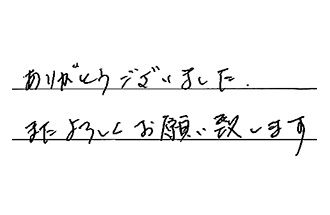 ありがとうございました.
またよろしくお願い致します